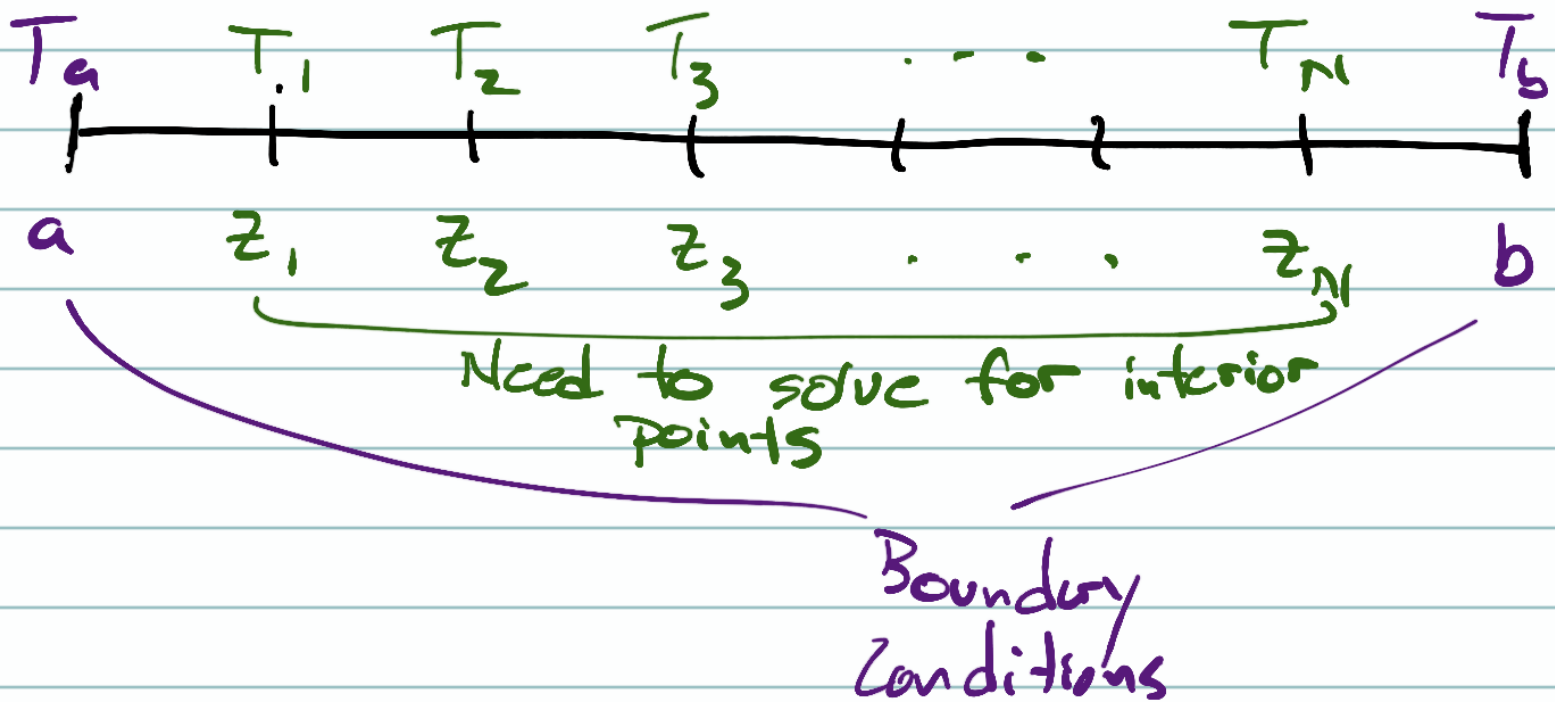 T_a T_1 T_2 T_3 . - - T_N T_b
a z_1 z_2 z_3 . . . z_N b
Need to solve for interior
points
Boundary
Conditions